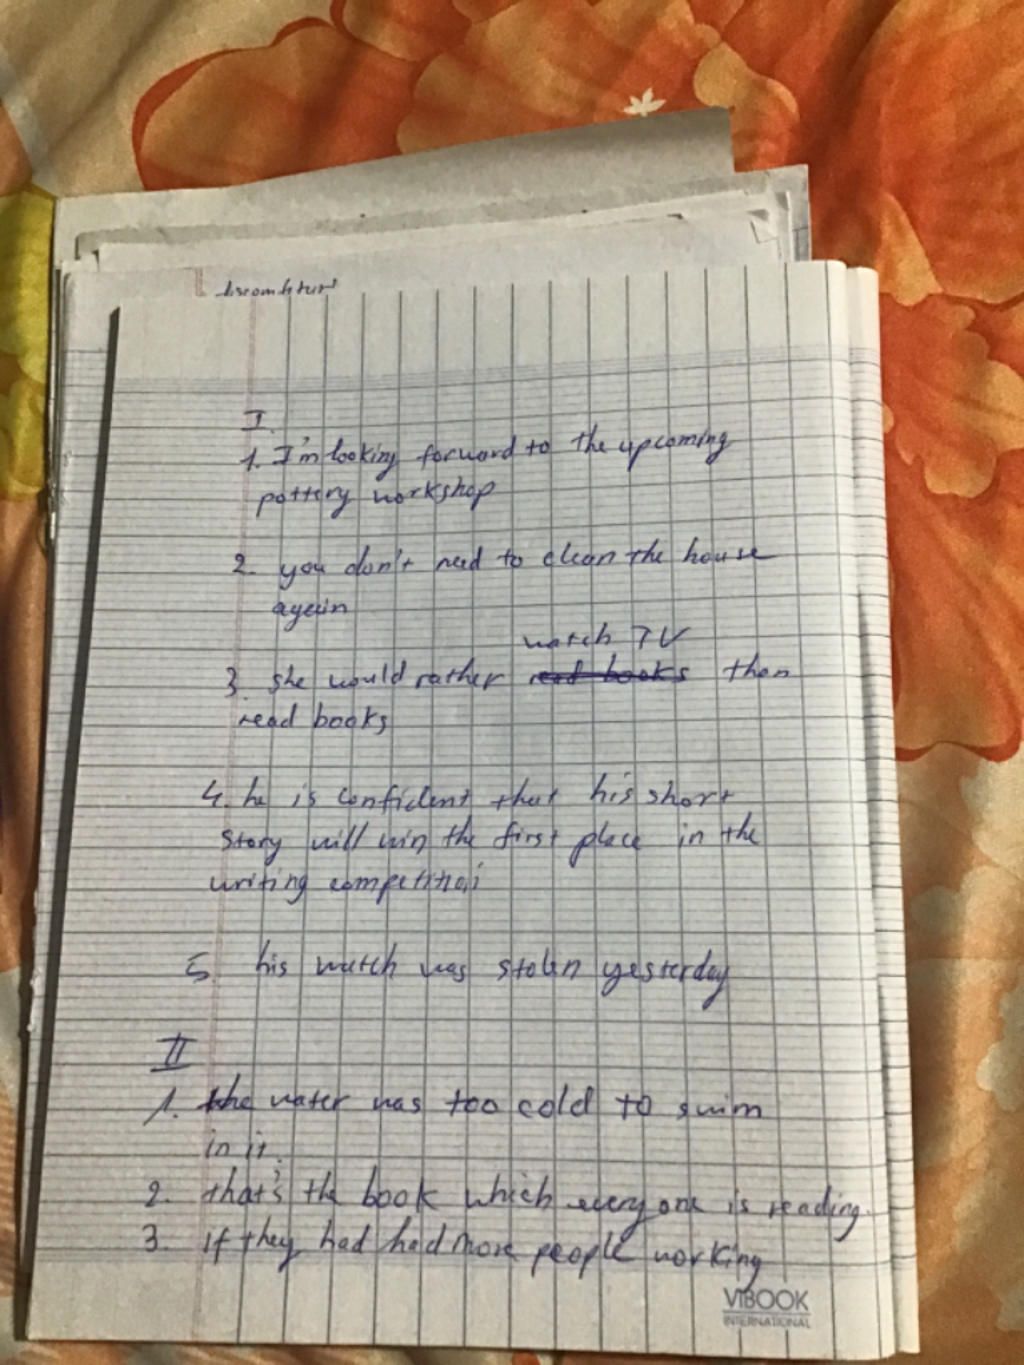 I.
1. I'm looking forward to the upcoming
pottery workshop
2. you don't need to clean the house
again
watch TV
3. she would rather read books than
read books
4. he is confident that his short
story will win the first place in the
writing competition
5. his watch was stolen yesterday
II
1. the water was too cold to swim
in it.
2. that's the book which everyone is reading.
3. if they had had more people working
VIBOOK
INTERNATIONAL